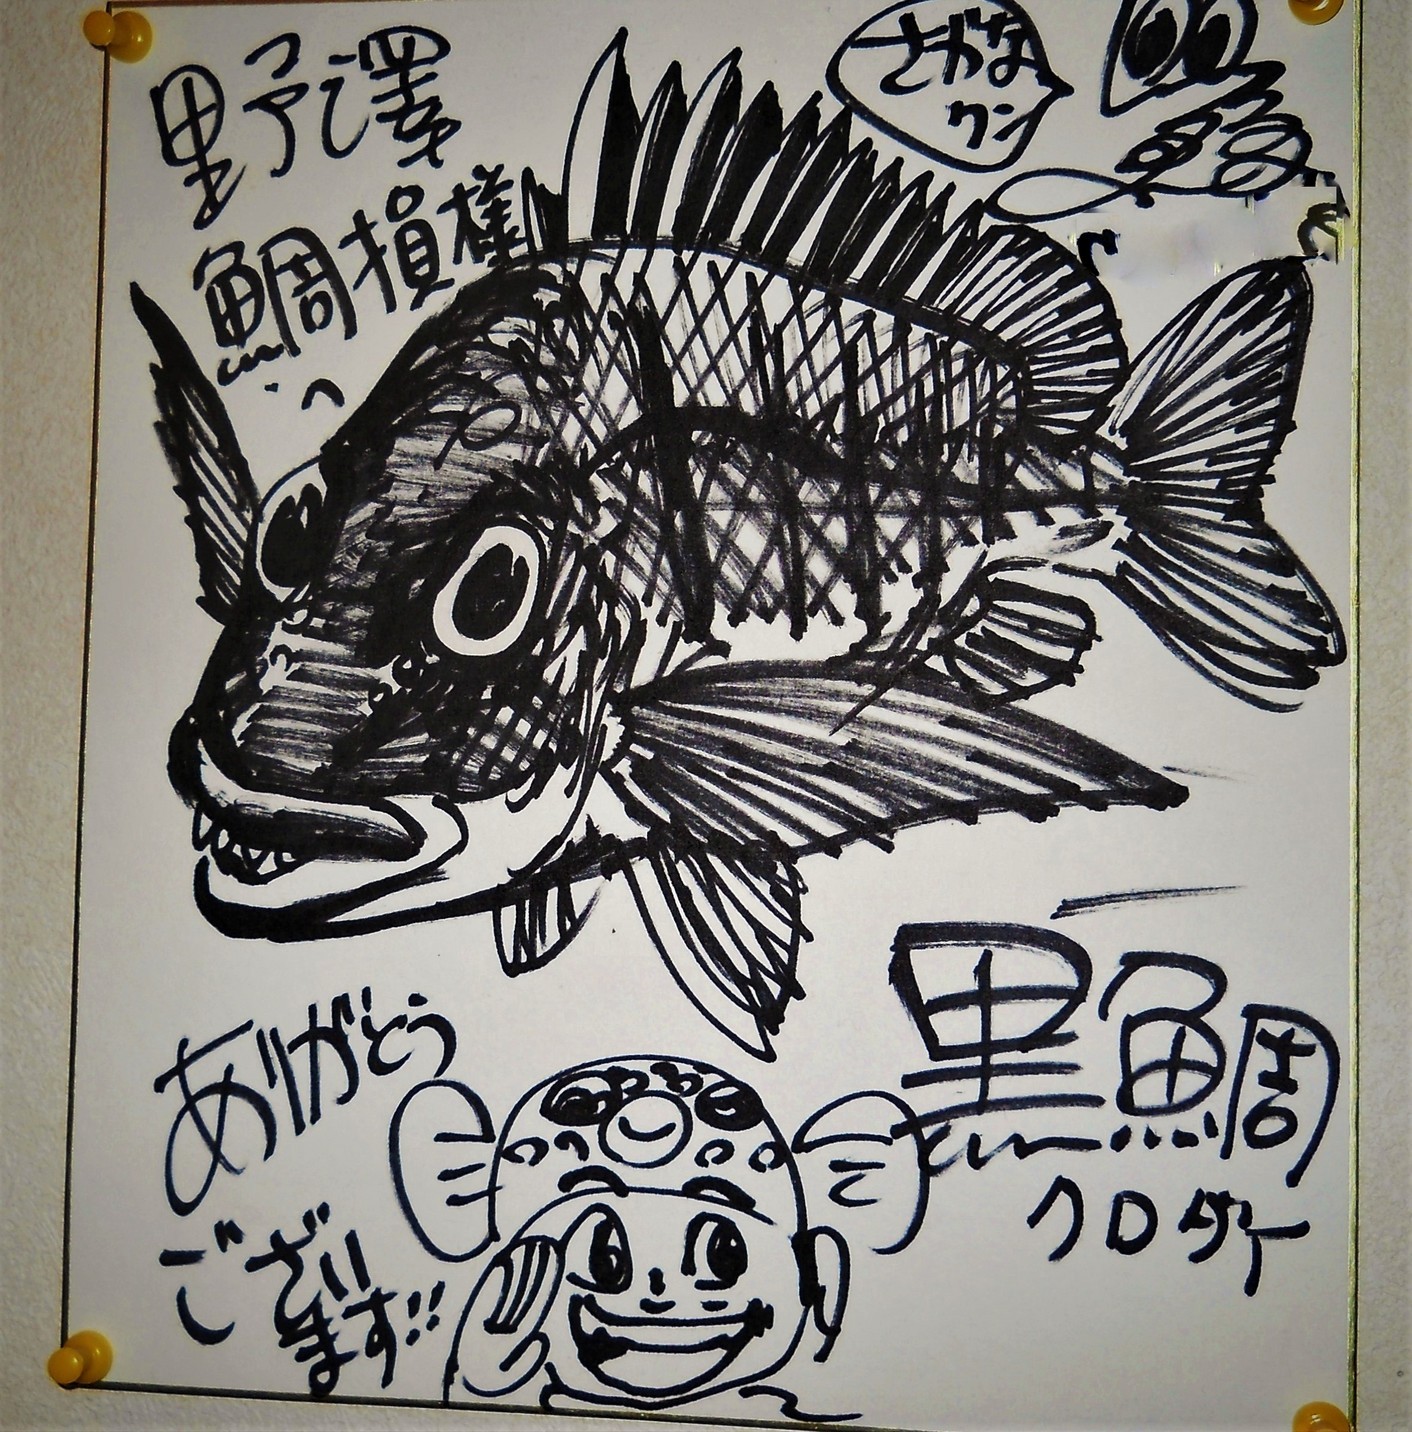 野澤
鯛損様
へ
さかな
クン
黒鯛
クロダイ
ありがとう
ござい
ます!!